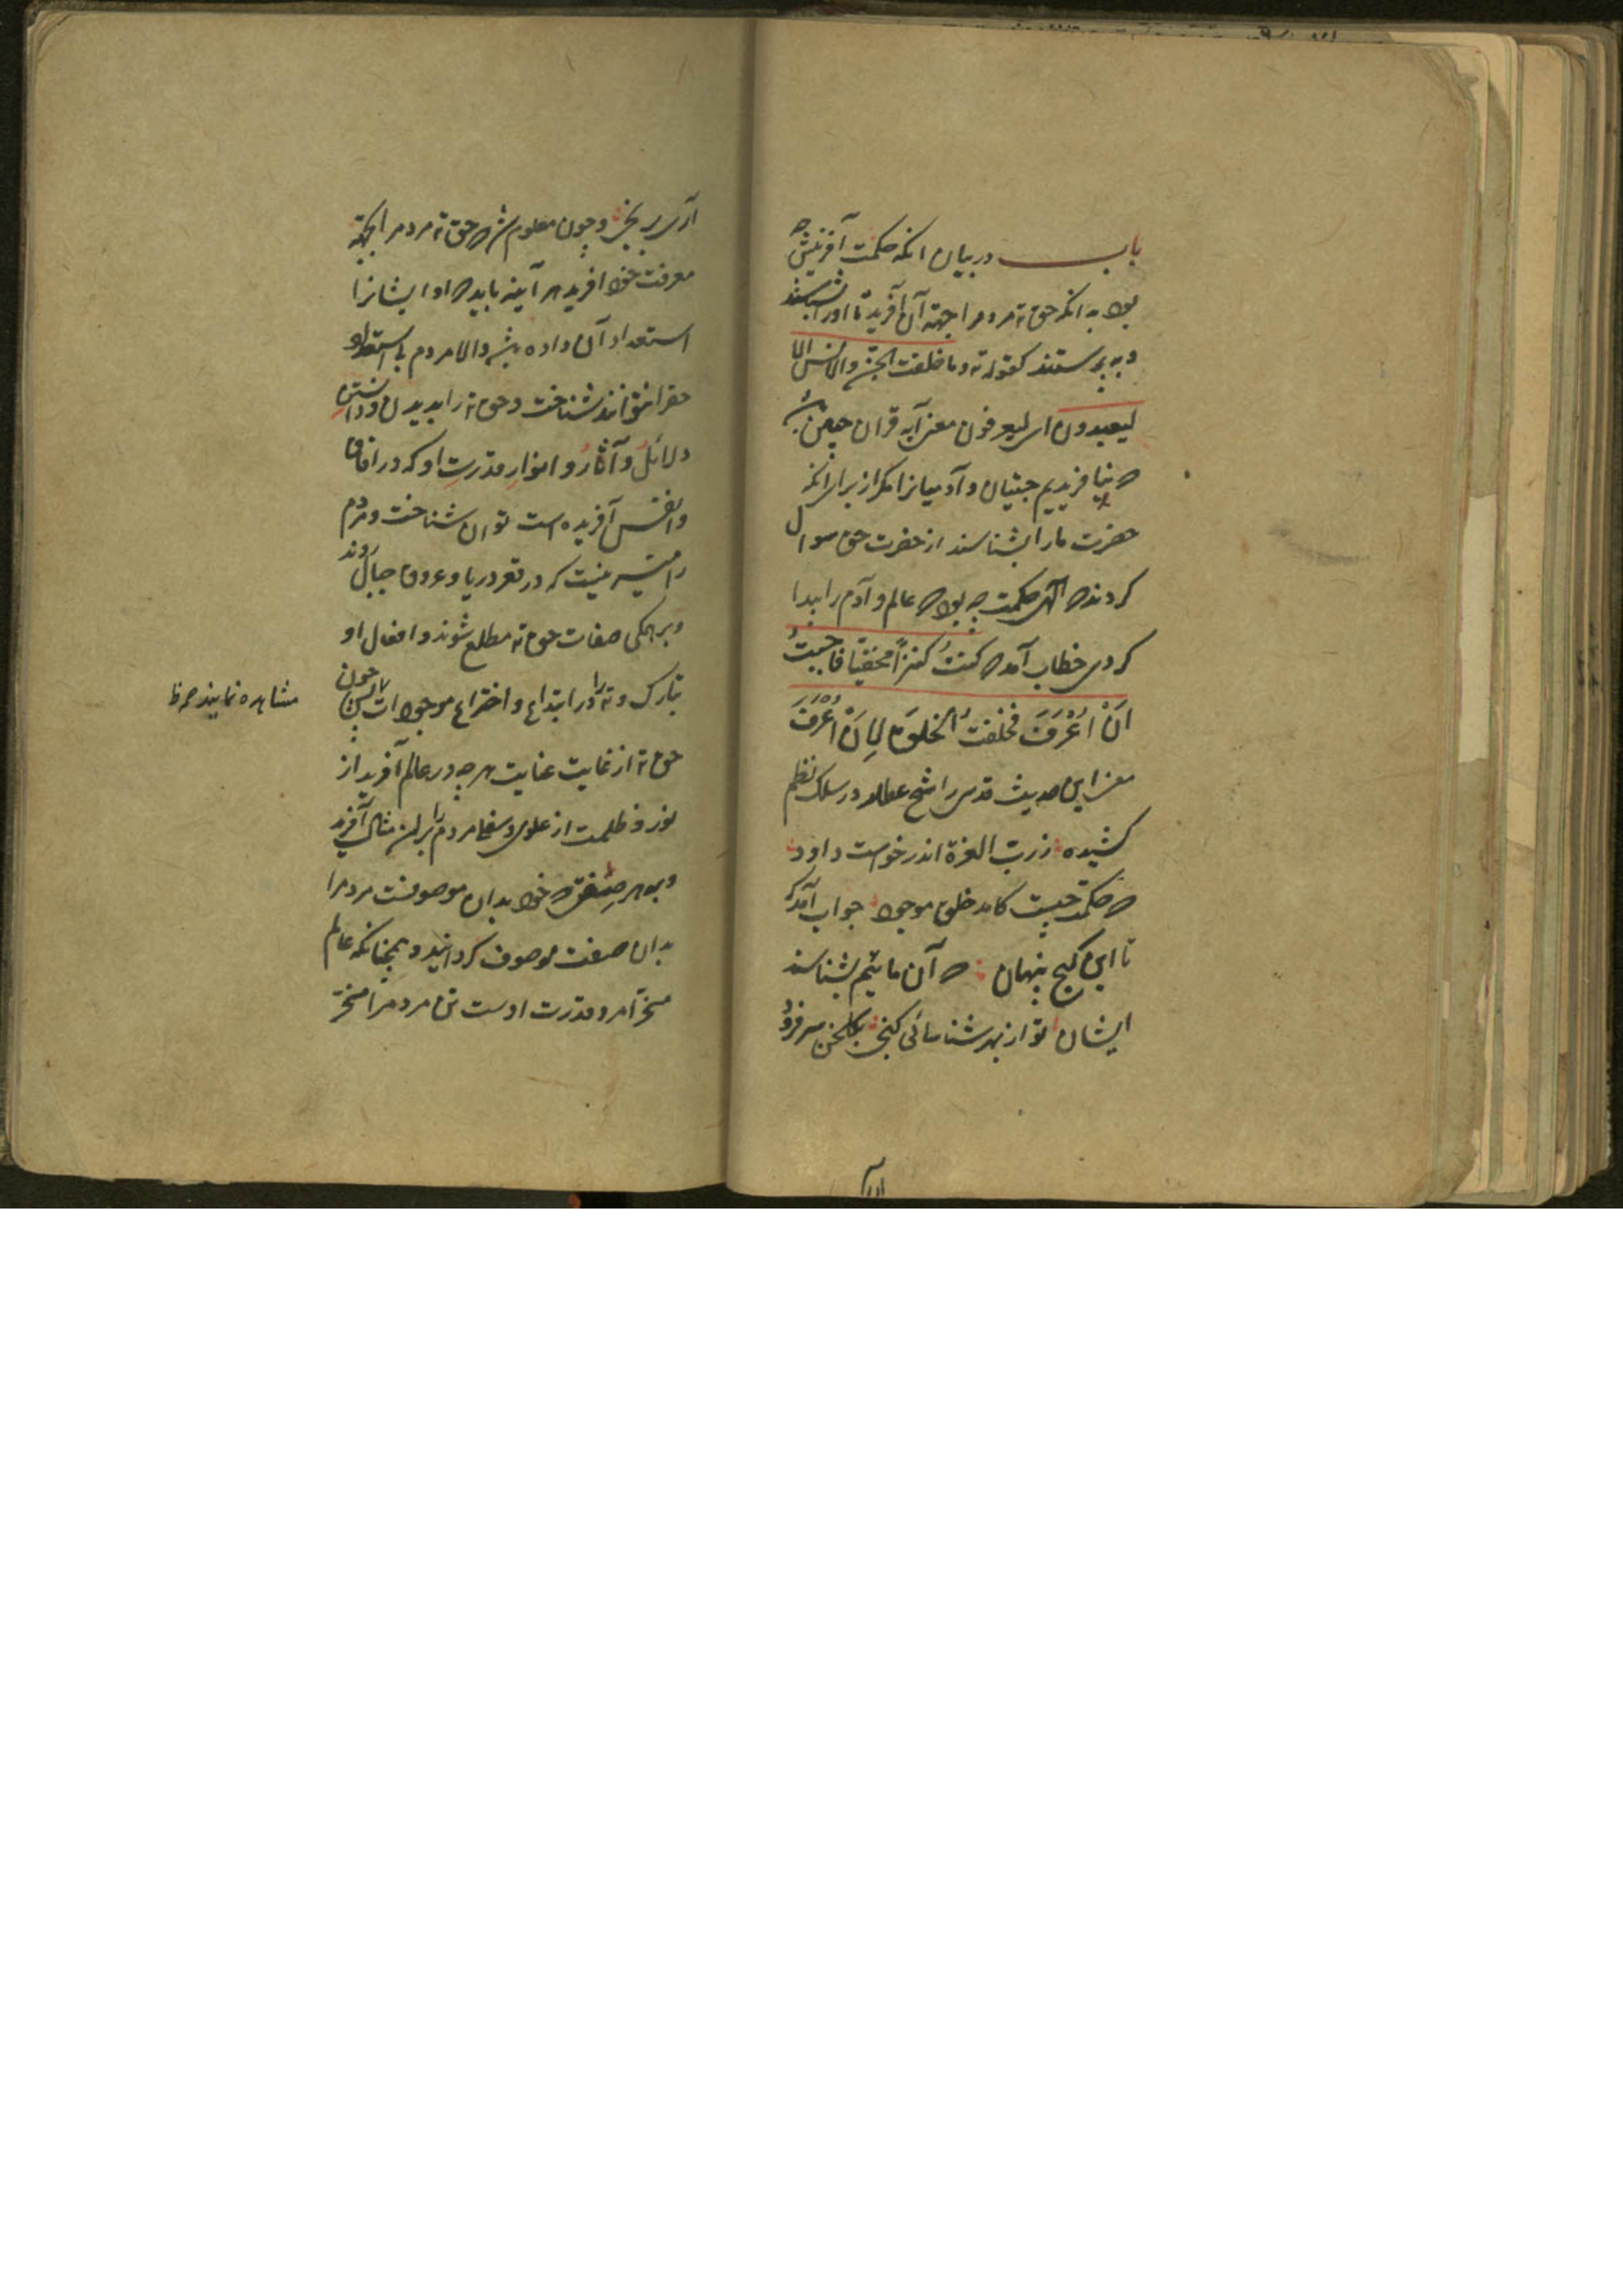 باب در بیان انکه حکمت آفرینش چه
بود بدانکه حق ته مردم را جهة آن آفرید تا اورا بشناسند
و بپرستند کقوله ته وما خلقت الجن والانس الا
لیعبدون ای لیعرفون معنی آیه قران چنین
که نیافریدیم جنیان و آدمیانرا مکر از برای انکه
حضرت مارا بشناسند از حضرت حق سوال
کردند که الهی حکمت چه بود که عالم و آدم را پیدا
کردی خطاب آمد که کنتُ کنزاً مخفیّا فاحببتُ
اَنْ اُعْرَفَ فخلقتُ الخلقَ لِاَنْ اُعْرَفَ
معنی این حدیث قدسی را شیخ عطار در سلک نظم
کشیده زرب العزة اندر خواست داود
که حکمت چیست کامد خلق موجود جواب آمد که
تا این کنج پنهان که آن مائیم بشناسند
ایشان تو از بهر شناسائی کنجی بکلخن سر فرود
آری برنجی و چون معلوم شد که حق ته مردم را بجهة
معرفت خود افرید هر آینه باید که او ایشانرا
استعداد آن داده باشد والا مردم بی استعداد
حقرا نتوانند شناخت و حق ته را بدیدن و دانستن
دلائل و آثار و انوار قدرت او که در افاق
و انفس آفریده است توان شناخت و مردم
را میسر نیست که در قعر دریا و عروق جبال روند
و بر همکی صفات حق ته مطلع شوند و افعال او
تبارک و ته را در ابتداع و اختراع موجودات پس چون
مشاهده نمایند
حق ته از غایت عنایت هر چه در عالم آفرید از
نور و ظلمت از علوی و سفلی مردم را بران مثال آفرید
و بهر صفتی که خود بدان موصوفست مردم را
بدان صفت موصوف کردانید و همچنانکه عالم
مسخر امر و قدرت اوست تن مردم را مسخر